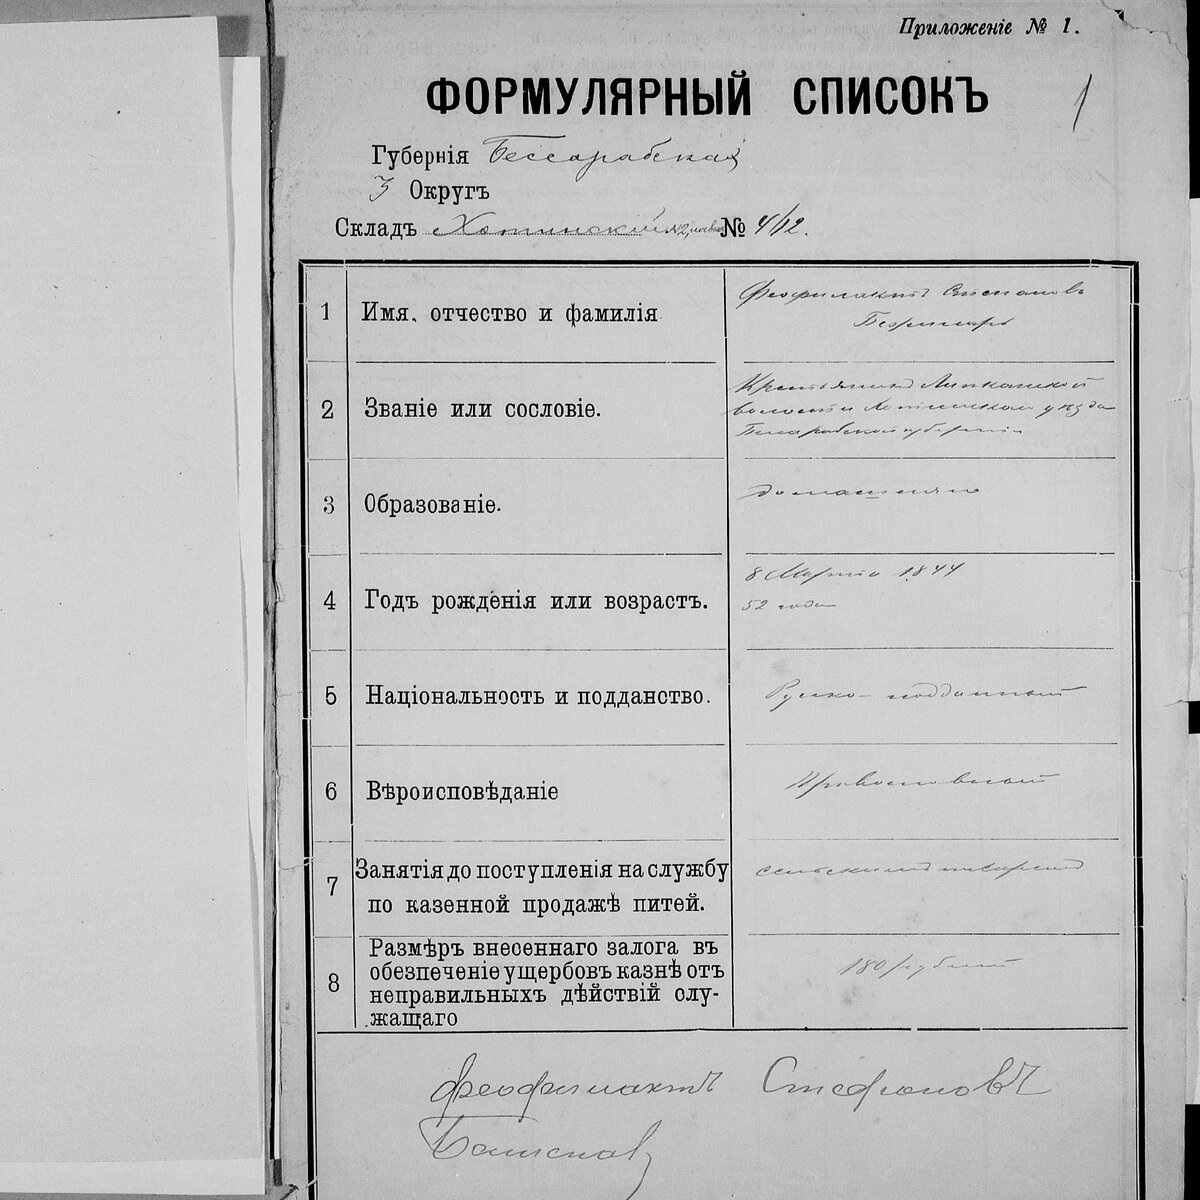 Приложеніе № 1.
ФОРМУЛЯРНЫЙ СПИСОКЪ
1
Губернія Бессарабская
3 Округъ
Складъ Хотинскій №2, лавка № 4/12.
1 Имя, отчество и фамилія
Феофилактъ Степановъ
2 Званіе или сословіе.
Крестьянинъ Липканской
волости Хотинскаго уѣзда
Бессарабской губерніи
3 Образованіе.
домашнее
4 Годъ рожденія или возрастъ.
8 Марта 1844
52 года
5 Національность и подданство.
Русско-подданный
6 Вѣроисповѣданіе
Православный
7 Занятія до поступленія на службу
по казенной продажѣ питей.
сельскимъ писаремъ
8 Размѣръ внесеннаго залога въ
обезпеченіе ущербовъ казнѣ отъ
неправильныхъ дѣйствій слу-
жащаго
180 рублей
Феофилактъ Стефановъ